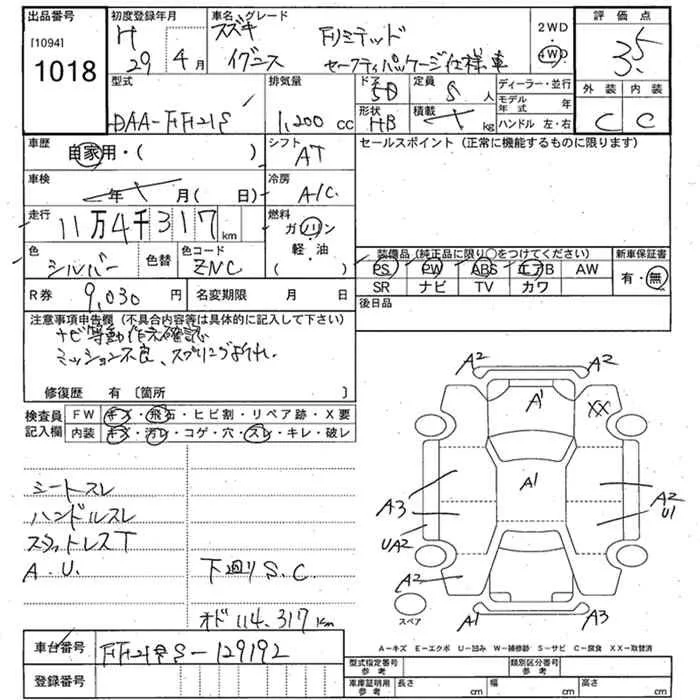 出品番号 初度登録年月 車名 グレード 2WD 評価点
[1094] H スズキ Fリミテッド 4WD 3.5
1018 29年4月 イグニス セーフティパッケージ仕様車
型式 排気量 ドア 5D 定員 5人 ディーラー・並行 外装 内装
DAA-FF21S 1,200cc 形状 HB 積載 kg モデル年式 年 C C
ハンドル 左・右
車歴 自家用・( ) シフト AT セールスポイント(正常に機能するものに限ります)
車検 年 月( 日) 冷房 A/C
走行 11万4千317km 燃料 ガソリン
軽・油
( )
色 シルバー 色替 色コード ZNC 装備品(純正品に限り○をつけてください) 新車保証書
PS PW ABS エアB AW 有・無
SR ナビ TV カワ
R券 9,030円 名変期限 月 日 後日品
注意事項申告欄(不具合内容等は具体的に記入して下さい)
ナビ等動作未確認
ミッション不良、スプリング折れ
修復歴 有〔箇所 〕
検査員記入欄 FW キズ・飛石・ヒビ割・リペア跡・X要
内装 キズ・汚レ・コゲ・穴・スレ・キレ・破レ
シートスレ
ハンドルスレ
スタットレスT
A.U. 下廻りS.C.
オド 114,317km
A2 A2
A1 XX
A1
A3 A2
U1
UA2
A2
A1 A3
スペア
A-キズ E-エクボ U-凹み W-補修跡 S-サビ C-腐食 XX-取替済
車台番号 FF21S-129192
登録番号
型式指定番号 参考 類別区分番号 参考
車庫証明用 参考 長さ cm 幅 cm 高さ cm